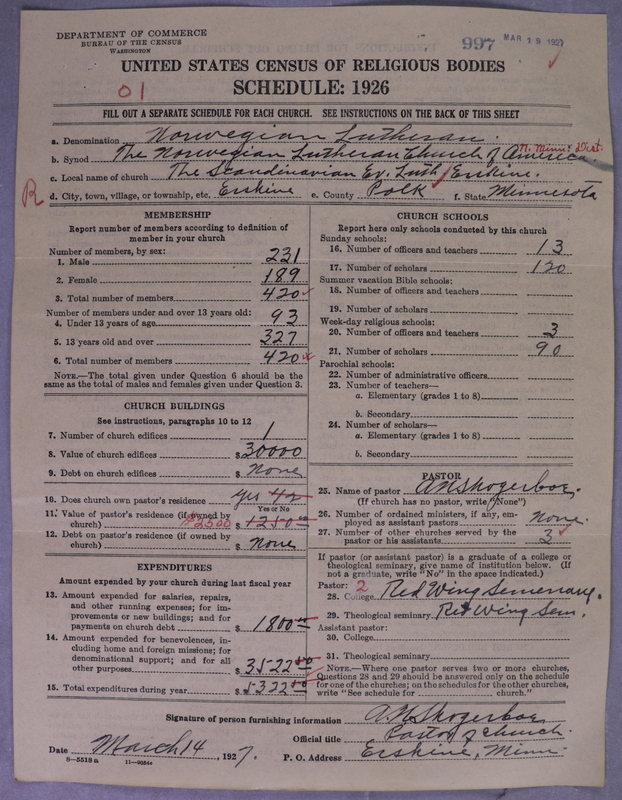 DEPARTMENT OF COMMERCE
BUREAU OF THE CENSUS
WASHINGTON
997 MAR 18 1927
UNITED STATES CENSUS OF RELIGIOUS BODIES
SCHEDULE: 1926
01
FILL OUT A SEPARATE SCHEDULE FOR EACH CHURCH. SEE INSTRUCTIONS ON THE BACK OF THIS SHEET
a. Denomination Norwegian Lutheran.
b. Synod The Norwegian Lutheran Church of America. N. Minn. Dist.
c. Local name of church The Scandinavian Ev. Luth / Erskine.
R
d. City, town, village, or township, etc. Erskine e. County Polk f. State Minnesota
MEMBERSHIP
Report number of members according to definition of
member in your church
Number of members, by sex:
1. Male 231
2. Female 189
3. Total number of members 420
Number of members under and over 13 years old:
4. Under 13 years of age 93
5. 13 years old and over 327
6. Total number of members 420
NOTE.—The total given under Question 6 should be
same as the total of males and females given under Question 3.
CHURCH BUILDINGS
See instructions, paragraphs 10 to 12
7. Number of church edifices 1
8. Value of church edifices $ 30000
9. Debt on church edifices $ None
10. Does church own pastor's residence yes 4/2
Yes or No
11. Value of pastor's residence (if owned by
church) $2500 $ 1250 00
12. Debt on pastor's residence (if owned by
church) $ None
EXPENDITURES
Amount expended by your church during last fiscal year
13. Amount expended for salaries, repairs,
and other running expenses; for im-
provements or new buildings; and for
payments on church debt $ 1800 00
14. Amount expended for benevolences, in-
cluding home and foreign missions; for
denominational support; and for all
other purposes $ 3522 00
15. Total expenditures during year $ 5322 00
CHURCH SCHOOLS
Report here only schools conducted by this church
Sunday schools:
16. Number of officers and teachers 13
17. Number of scholars 120
Summer vacation Bible schools:
18. Number of officers and teachers
19. Number of scholars
Week-day religious schools:
20. Number of officers and teachers 3
21. Number of scholars 90
Parochial schools:
22. Number of administrative officers
23. Number of teachers—
a. Elementary (grades 1 to 8)
b. Secondary
24. Number of scholars—
a. Elementary (grades 1 to 8)
b. Secondary
PASTOR
25. Name of pastor A.N. Skogerboe.
(If church has no pastor, write "None")
26. Number of ordained ministers, if any, em-
ployed as assistant pastors none.
27. Number of other churches served by the
pastor or his assistants 3
If pastor (or assistant pastor) is a graduate of a college or
theological seminary, give name of institution below. (If
not a graduate, write "No" in the space indicated.)
Pastor: 2
28. College Red Wing Seminary.
29. Theological seminary Red Wing Sem.
Assistant pastor:
30. College
31. Theological seminary
NOTE.—Where one pastor serves two or more churches,
Questions 28 and 29 should be answered only on the schedule
for one of the churches; on the schedules for the other churches,
write "See schedule for church."
Signature of person furnishing information A.N. Skogerboe
Official title Pastor of church.
Date March 14, 1927. P. O. Address Erskine, Minn.
8—5518a 11—9054a